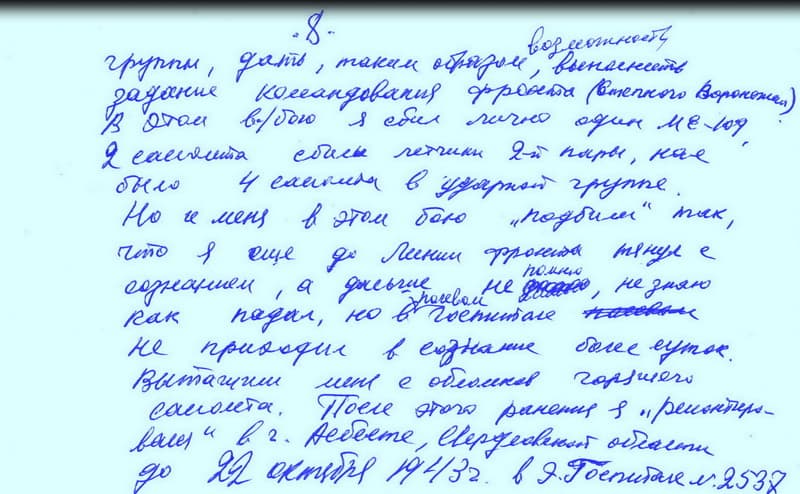 . 8.
группы, дать, таким образом, возможность выполнить
задание командования фронта (Степного Воронежск)
В этом в./бою я сбил лично один МЕ-109,
2 самолета сбили летчики 2-й пары, нас
было 4 самолета в ударной группе.
Но и меня в этом бою „подбили" так,
что я еще до линии фронта тянул с
сознанием, а дальше не помню, не знаю
как падал, но в полевом госпитале
не приходил в сознание более суток.
Вытащили меня с обломков горящего
самолета. После этого ранения я „ремонтиро-
вался" в г. Асбесте, Свердловской области
до 22 октября 1943 г. в Э.Госпитале №2537